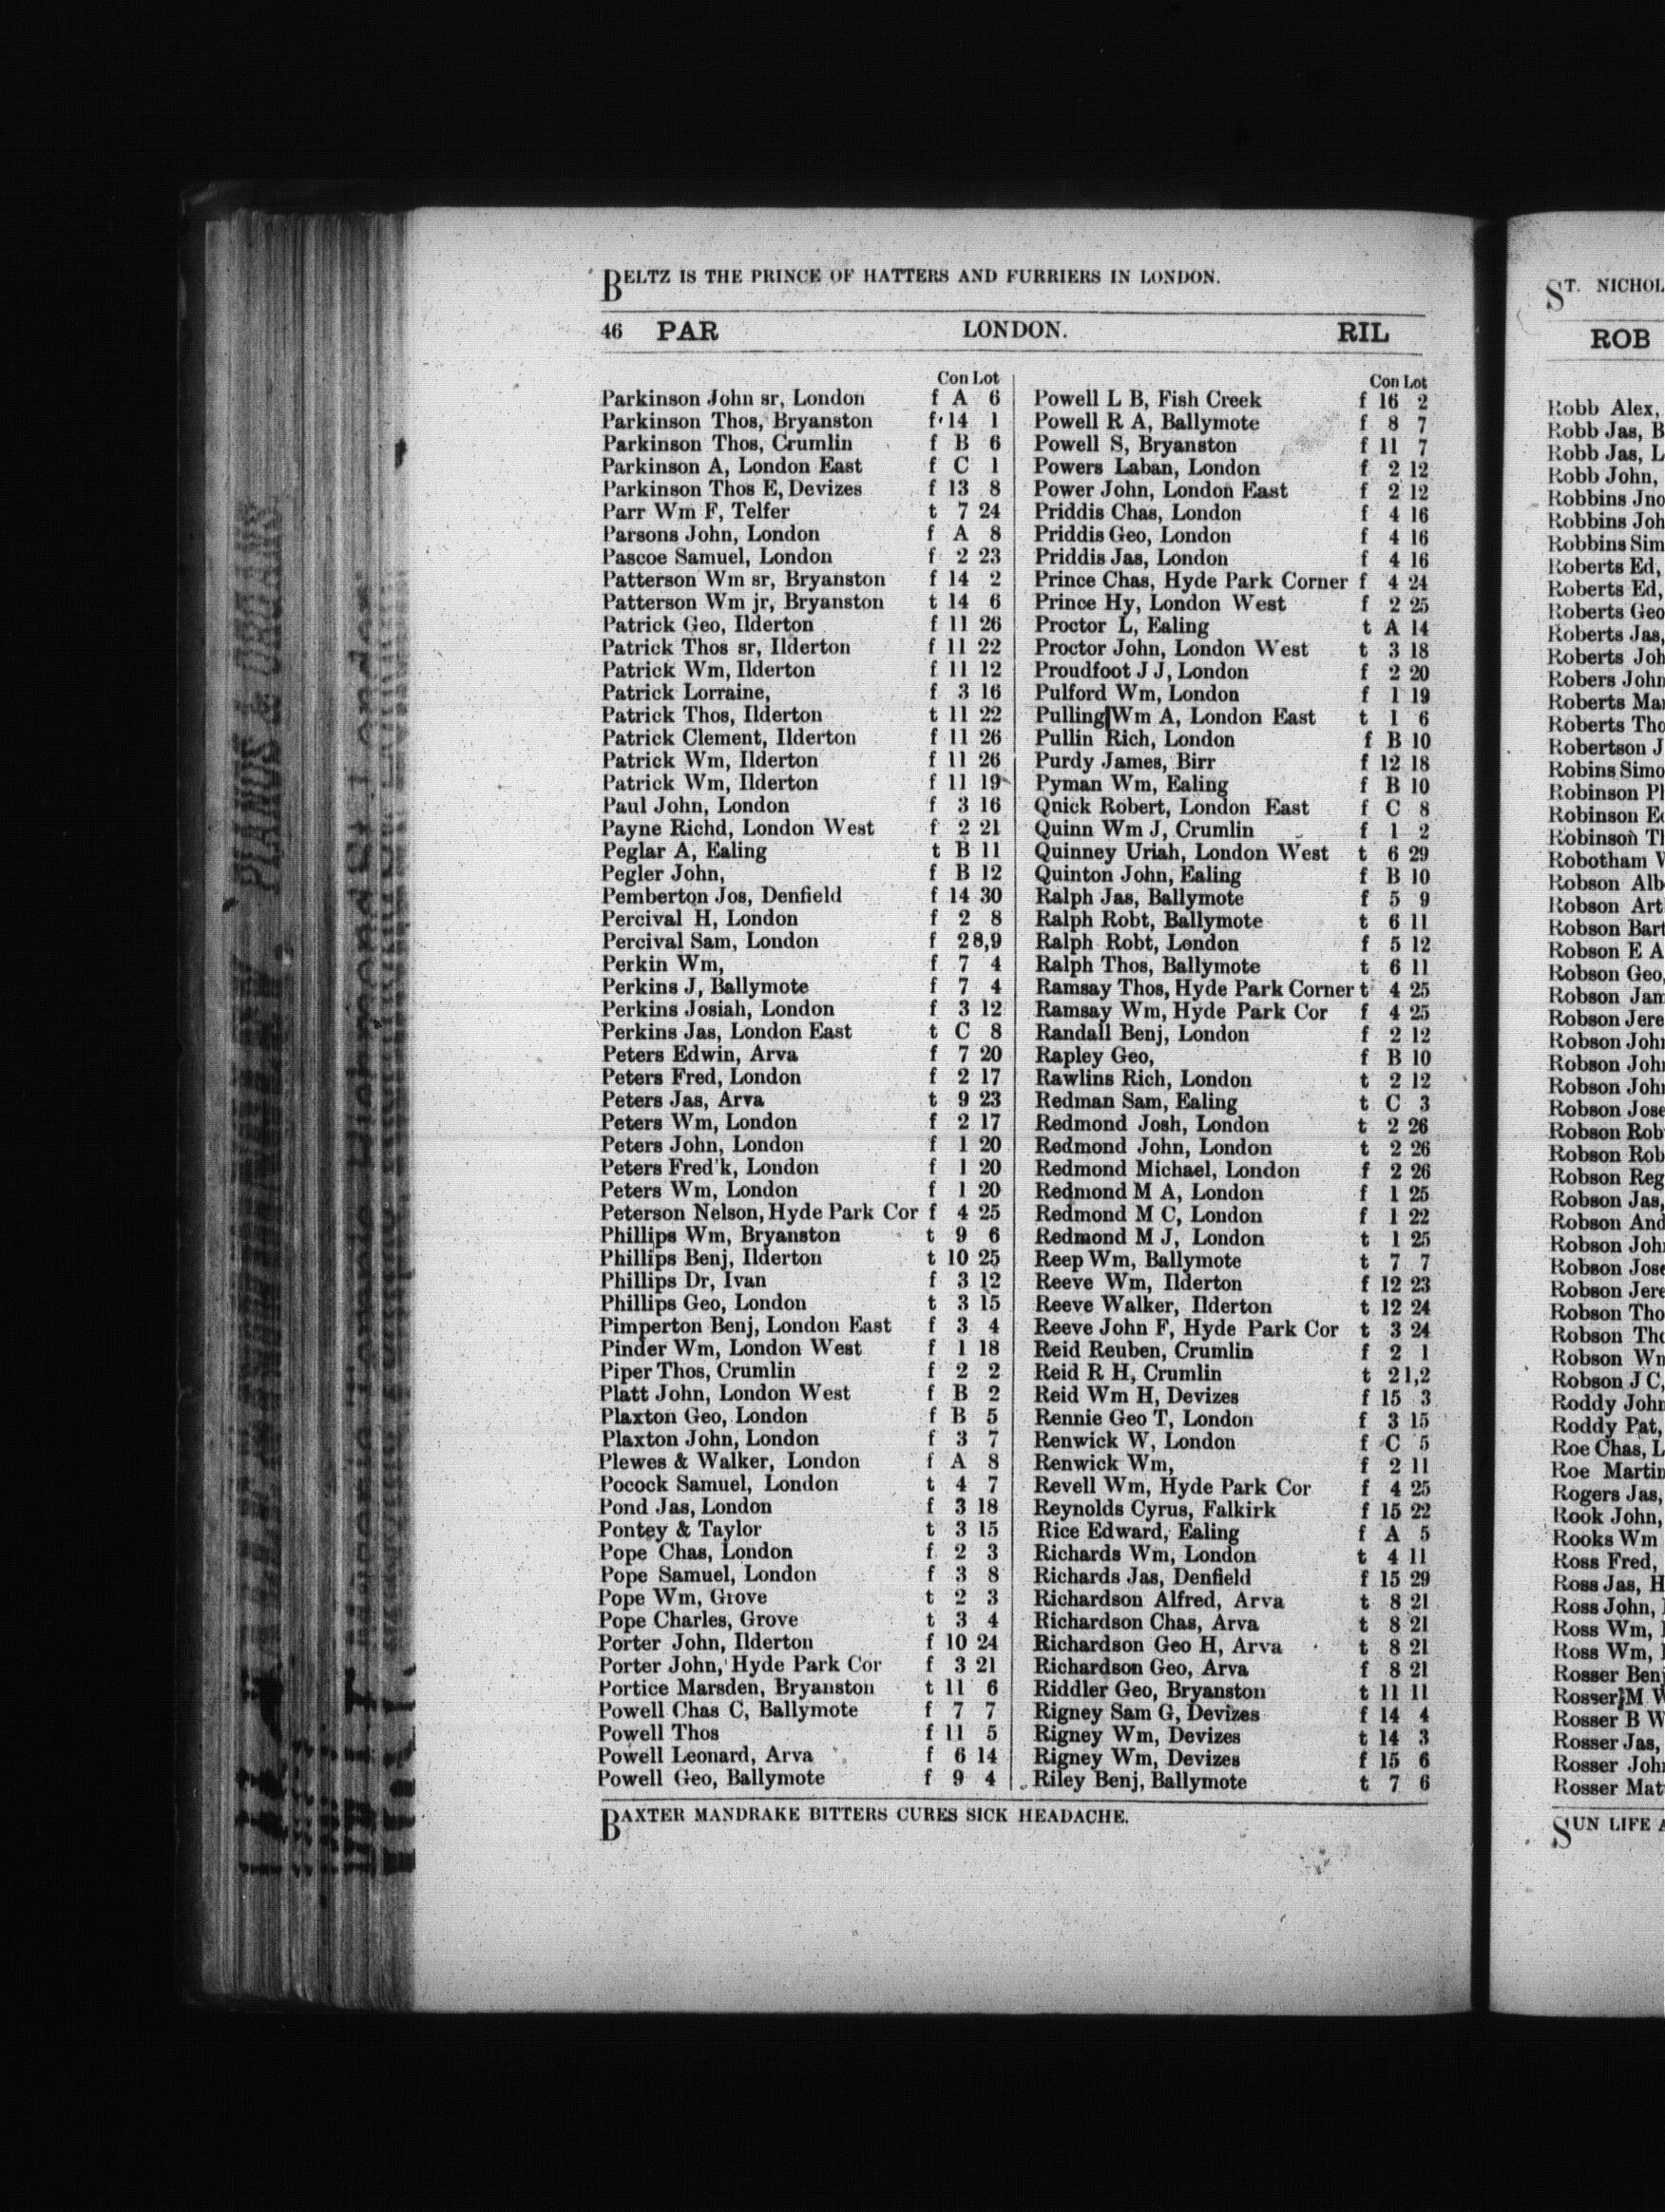 BELTZ IS THE PRINCE OF HATTERS AND FURRIERS IN LONDON.
46 PAR LONDON. RIL
Con Lot
Parkinson John sr, London f A 6
Parkinson Thos, Bryanston f 14 1
Parkinson Thos, Crumlin f B 6
Parkinson A, London East f C 1
Parkinson Thos E, Devizes f 13 8
Parr Wm F, Telfer t 7 24
Parsons John, London f A 8
Pascoe Samuel, London f 2 23
Patterson Wm sr, Bryanston f 14 2
Patterson Wm jr, Bryanston t 14 6
Patrick Geo, Ilderton f 11 26
Patrick Thos sr, Ilderton f 11 22
Patrick Wm, Ilderton f 11 12
Patrick Lorraine, f 3 16
Patrick Thos, Ilderton t 11 22
Patrick Clement, Ilderton f 11 26
Patrick Wm, Ilderton f 11 26
Patrick Wm, Ilderton f 11 19
Paul John, London f 3 16
Payne Richd, London West f 2 21
Peglar A, Ealing t B 11
Pegler John, f B 12
Pemberton Jos, Denfield f 14 30
Percival H, London f 2 8
Percival Sam, London f 2 8,9
Perkin Wm, f 7 4
Perkins J, Ballymote f 7 4
Perkins Josiah, London f 3 12
Perkins Jas, London East t C 8
Peters Edwin, Arva f 7 20
Peters Fred, London f 2 17
Peters Jas, Arva t 9 23
Peters Wm, London f 2 17
Peters John, London f 1 20
Peters Fred'k, London f 1 20
Peters Wm, London f 1 20
Peterson Nelson, Hyde Park Cor f 4 25
Phillips Wm, Bryanston t 9 6
Phillips Benj, Ilderton t 10 25
Phillips Dr, Ivan f 3 12
Phillips Geo, London t 3 15
Pimperton Benj, London East f 3 4
Pinder Wm, London West f 1 18
Piper Thos, Crumlin f 2 2
Platt John, London West f B 2
Plaxton Geo, London f B 5
Plaxton John, London f 3 7
Plewes & Walker, London f A 8
Pocock Samuel, London t 4 7
Pond Jas, London f 3 18
Pontey & Taylor t 3 15
Pope Chas, London f 2 3
Pope Samuel, London f 3 8
Pope Wm, Grove t 2 3
Pope Charles, Grove t 3 4
Porter John, Ilderton f 10 24
Porter John, Hyde Park Cor f 3 21
Portice Marsden, Bryanston t 11 6
Powell Chas C, Ballymote f 7 7
Powell Thos f 11 5
Powell Leonard, Arva f 6 14
Powell Geo, Ballymote f 9 4
Con Lot
Powell L B, Fish Creek f 16 2
Powell R A, Ballymote f 8 7
Powell S, Bryanston f 11 7
Powers Laban, London f 2 12
Power John, London East f 2 12
Priddis Chas, London f 4 16
Priddis Geo, London f 4 16
Priddis Jas, London f 4 16
Prince Chas, Hyde Park Corner f 4 24
Prince Hy, London West f 2 25
Proctor L, Ealing t A 14
Proctor John, London West t 3 18
Proudfoot J J, London f 2 20
Pulford Wm, London f 1 19
Pulling Wm A, London East t 1 6
Pullin Rich, London f B 10
Purdy James, Birr f 12 18
Pyman Wm, Ealing f B 10
Quick Robert, London East f C 8
Quinn Wm J, Crumlin f 1 2
Quinney Uriah, London West t 6 29
Quinton John, Ealing f B 10
Ralph Jas, Ballymote f 5 9
Ralph Robt, Ballymote t 6 11
Ralph Robt, London f 5 12
Ralph Thos, Ballymote t 6 11
Ramsay Thos, Hyde Park Corner t 4 25
Ramsay Wm, Hyde Park Cor f 4 25
Randall Benj, London f 2 12
Rapley Geo, f B 10
Rawlins Rich, London t 2 12
Redman Sam, Ealing t C 3
Redmond Josh, London t 2 26
Redmond John, London t 2 26
Redmond Michael, London f 2 26
Redmond M A, London f 1 25
Redmond M C, London f 1 22
Redmond M J, London t 1 25
Reep Wm, Ballymote t 7 7
Reeve Wm, Ilderton f 12 23
Reeve Walker, Ilderton t 12 24
Reeve John F, Hyde Park Cor t 3 24
Reid Reuben, Crumlin f 2 1
Reid R H, Crumlin t 2 1,2
Reid Wm H, Devizes f 15 3
Rennie Geo T, London f 3 15
Renwick W, London f C 5
Renwick Wm, f 2 11
Revell Wm, Hyde Park Cor f 4 25
Reynolds Cyrus, Falkirk f 15 22
Rice Edward, Ealing f A 5
Richards Wm, London t 4 11
Richards Jas, Denfield f 15 29
Richardson Alfred, Arva t 8 21
Richardson Chas, Arva t 8 21
Richardson Geo H, Arva t 8 21
Richardson Geo, Arva f 8 21
Riddler Geo, Bryanston t 11 11
Rigney Sam G, Devizes f 14 4
Rigney Wm, Devizes t 14 3
Rigney Wm, Devizes f 15 6
Riley Benj, Ballymote t 7 6
BAXTER MANDRAKE BITTERS CURES SICK HEADACHE.
ST.
ROB
Robb Alex,
Robb Jas,
Robb Jas,
Robb John,
Robbins Jno
Robbins
Robbins
Roberts Ed,
Roberts Ed,
Roberts Geo
Roberts Jas,
Roberts
Robers John
Roberts
Roberts
Robertson
Robins
Robinson
Robinson
Robinson
Robotham
Robson
Robson
Robson
Robson E A
Robson Geo,
Robson
Robson
Robson
Robson
Robson
Robson
Robson
Robson
Robson
Robson Jas,
Robson
Robson
Robson
Robson
Robson
Robson
Robson
Robson J C,
Roddy
Roddy Pat,
Roe Chas,
Roe
Rogers Jas,
Rook John,
Rooks Wm
Ross Fred,
Ross Jas,
Ross John,
Ross Wm,
Ross Wm,
Rosser
Rosser M
Rosser B
Rosser Jas,
Rosser
Rosser
SUN LIFE
PIANOS & ORGANS